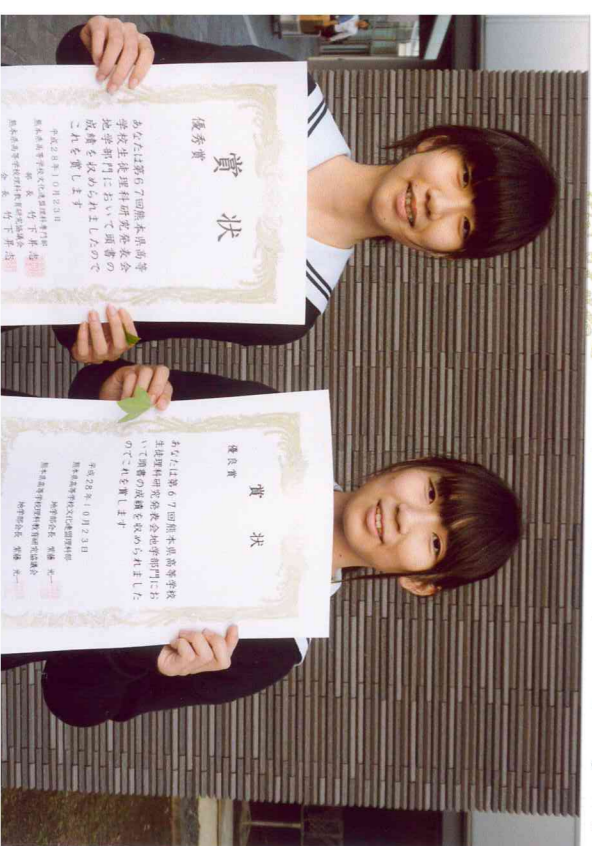 賞状
優秀賞
あなたは第67回熊本県高等
学校生徒理科研究発表会
地学部門において頭書の
成績を収められましたので
これを賞します
平成28年10月23日
熊本県高等学校文化連盟理科専門部
部長 竹下昇
熊本県高等学校理科教育研究協議会
会長 竹下昇
賞状
優良賞
あなたは第67回熊本県高等学校
生徒理科研究発表会地学部門にお
いて頭書の成績を収められました
のでこれを賞します
平成28年10月23日
熊本県高等学校文化連盟理科部
地学部会長 光一
熊本県高等学校理科教育研究協議会
地学部会長 光一